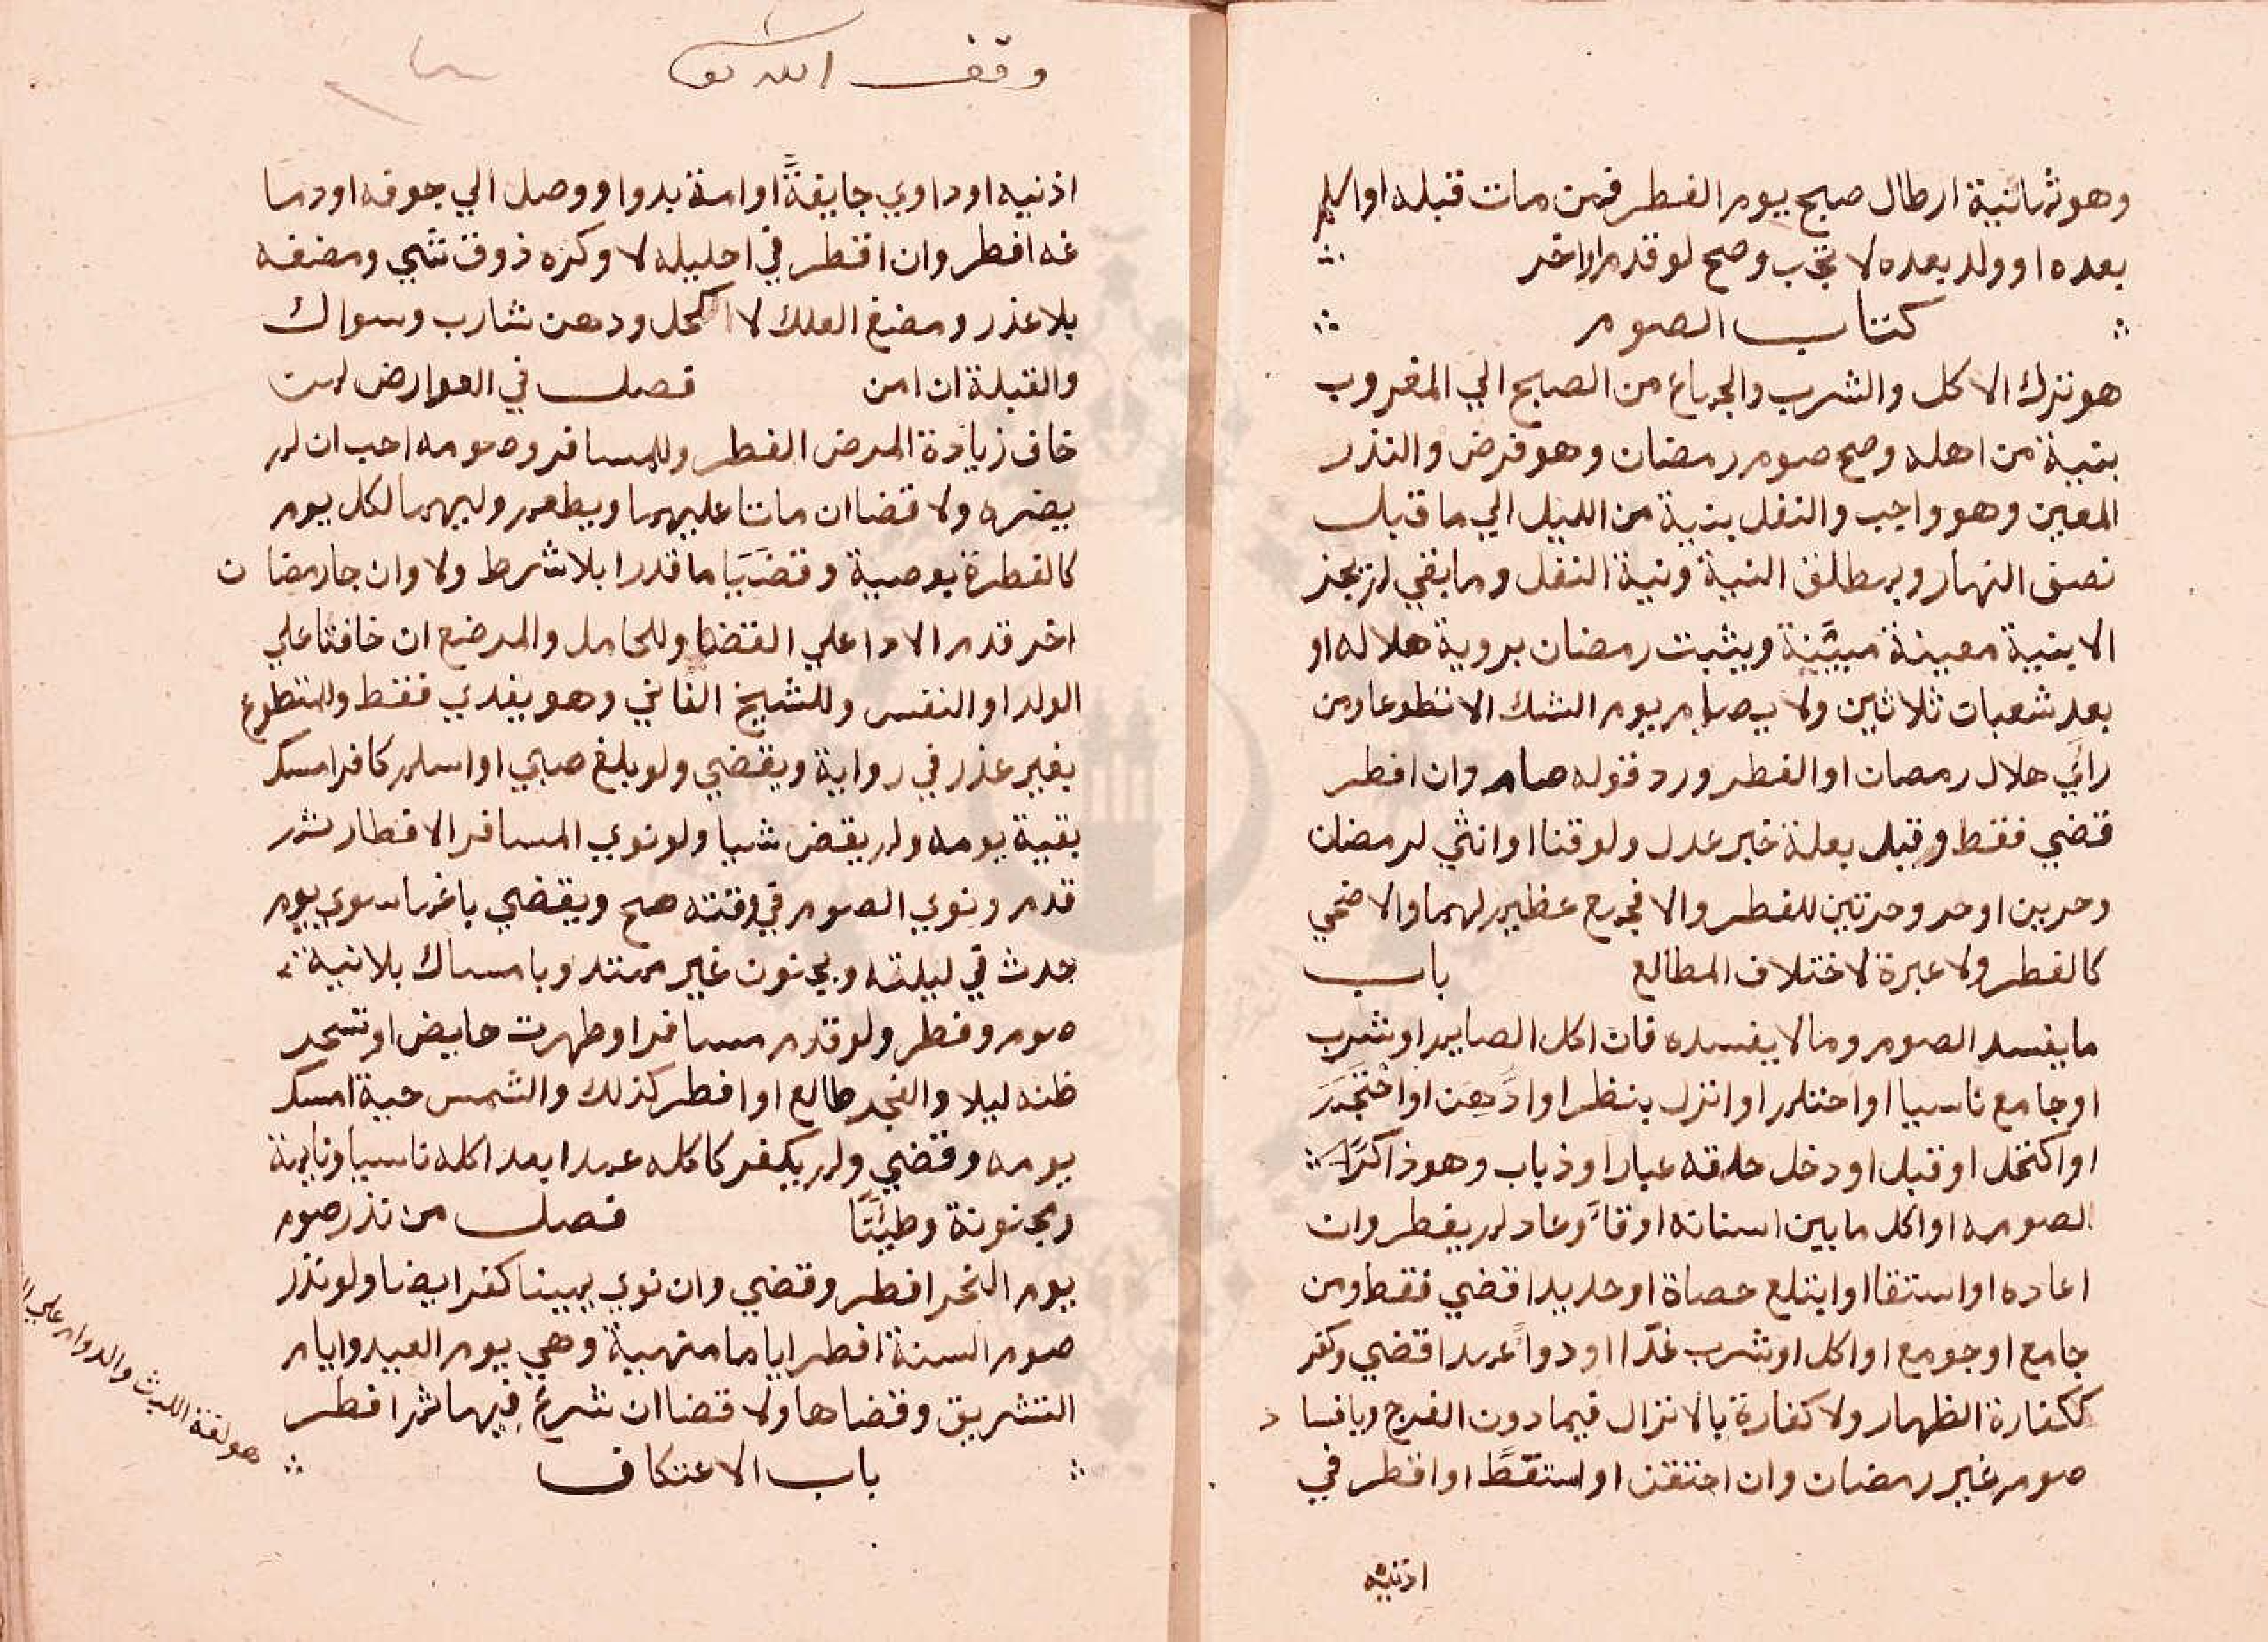 وهو ثمانية ارطال صبح يوم الفطر فمن مات قبله او اسلم
بعده او ولد بعده لا تجب وصح لو قدم او اخر
كتاب الصوم
هو ترك الاكل والشرب والجماع من الصبح الي الغروب
بنية من اهله وصح صوم رمضان وهو فرض والنذر
المعين وهو واجب والنفل بنية من الليل الي ما قبل
نصف النهار وبمطلق النية ونية النفل وما بقي لم يجز
الا بنية معينة مبيتة ويثبت رمضان بروية هلاله او
بعد شعبان ثلاثين ولا يصام يوم الشك الا تطوعا ومن
راي هلال رمضان او الفطر ورد قوله صام وان افطر
قضي فقط وقبل بعلة خبر عدل ولو قنا او انثي لرمضان
وحرين او حر وحرتين للفطر والا فجمع عظيم لهما والاضحي
كالفطر ولا عبرة لاختلاف المطالع باب
ما يفسد الصوم وما لا يفسده فان اكل الصايم او شرب
او جامع ناسيا او احتلم او انزل بنظر او ادهن او احتجم
او اكتحل او قبل او دخل حلقه غبار او ذباب وهو ذاكرا
لصومه او اكل ما بين اسنانه او قاء وعاد لم يفطر وان
اعاده او استقا او ابتلع حصاة او حديدا قضي فقط ومن
جامع او جومع او اكل او شرب غذا او دواء عمدا قضي وكفر
ككفارة الظهار ولا كفارة بالانزال فيما دون الفرج وبافساد
صوم غير رمضان وان احتقن او استعط او اقطر في
اذنيه
وقف الله تعالى
اذنيه او داوي جايفة او امة بدوا ووصل الي جوفه او دما
غه افطر وان اقطر في احليله لا وكره ذوق شي ومضغه
بلا عذر ومضغ العلك لا كحل ودهن شارب وسواك
والقبلة ان امن فصل في العوارض لمن
خاف زيادة المرض الفطر وللمسافر وصومه احب ان لم
يضره ولا قضا ان ماتا عليهما ويطعم وليهما لكل يوم
كالفطرة بوصية وقضيا ما قدرا بلا شرط ولا وان جا رمضان
اخر قدم الادا علي القضا وللحامل والمرضع ان خافتا علي
الولد او النفس وللشيخ الفاني وهو يفدي فقط وللمتطوع
بغير عذر في رواية ويقضي ولو بلغ صبي او اسلم كافر امسك
بقية يومه ولم يقض شيا ولو نوي المسافر الافطار ثم
قدم ونوي الصوم في وقته صح ويقضي باغما سوي يوم
حدث في ليلته وبجنون غير ممتد وبامساك بلا نية
صوم وفطر ولو قدم مسافر او طهرت حايض او تسحر
ظنه ليلا والفجر طالع او افطر كذلك والشمس حية امسك
يومه وقضي ولم يكفر كاكله عمدا بعد اكله ناسيا ونايمة
ومجنونة وطيتا فصل من نذر صوم
يوم النحر افطر وقضي وان نوي يمينا كفر ايضا ولو نذر
صوم السنة افطر اياما منهية وهي يوم العيد وايام
التشريق وقضاها ولا قضا ان شرع فيها ثم افطر
باب الاعتكاف
هو لغة اللبث والدوام علي